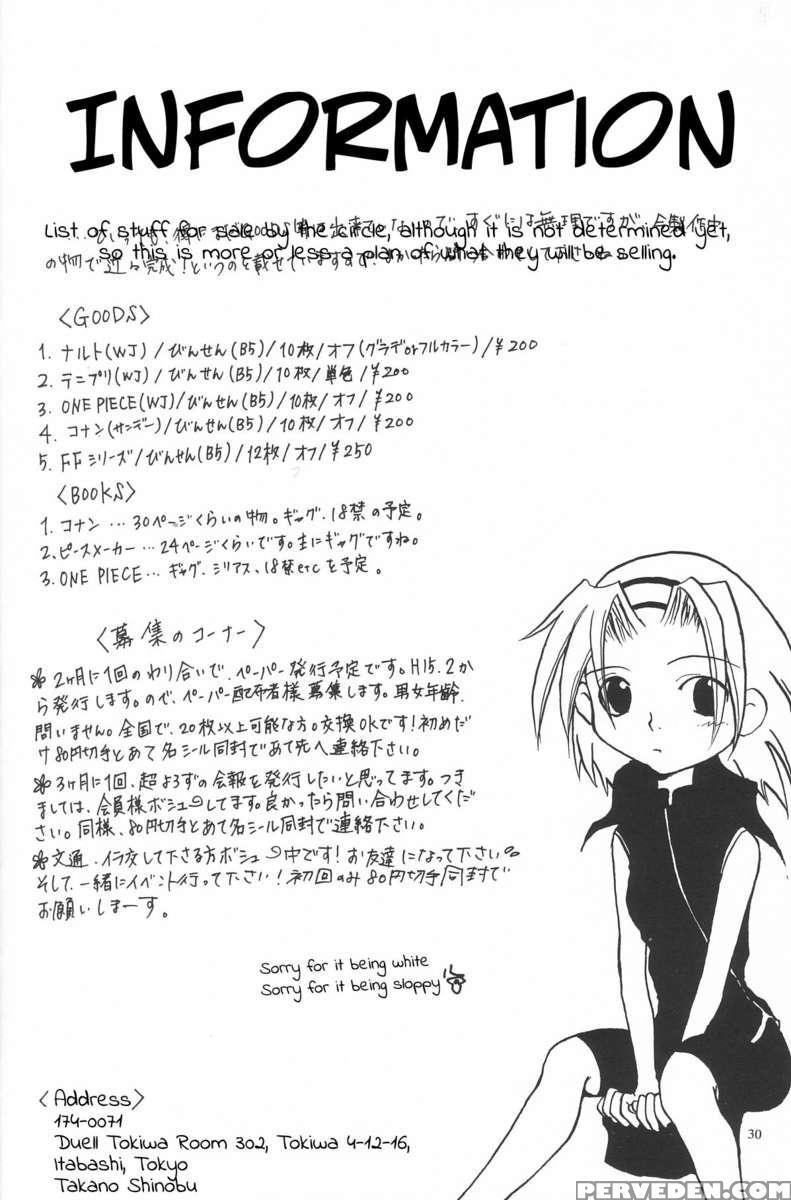 INFORMATION
List of stuff for sale by the circle, although it is not determined yet,
so this is more or less a plan of what they will be selling.
の物で近々完成!というのを載せています
<GOODS>
1. ナルト(WJ)/びんせん(B5)/10枚/オフ(グラデorフルカラー)/¥200
2. テニプリ(WJ)/びんせん(B5)/10枚/単色/¥200
3. ONE PIECE(WJ)/びんせん(B5)/10枚/オフ/¥200
4. コナン(サンデー)/びんせん(B5)/10枚/オフ/¥200
5. FFシリーズ/びんせん(B5)/12枚/オフ/¥250
<BOOKS>
1. コナン … 30ページくらいの物。ギャグ、18禁の予定。
2. ピースメーカー … 24ページくらいです。主にギャグですね。
3. ONE PIECE … ギャグ、シリアス、18禁etcを予定。
<募集のコーナー>
2ヶ月に1回のわり合いで、ペーパー発行予定です。H15.2か
ら発行します。ので、ペーパー配布者様募集します。男女年齢
問いません。全国で、20枚以上可能な方。交換OKです!初めだ
け80円切手とあて名シール同封であて先へ連絡下さい。
3ヶ月に1回、超よろずの会報を発行したいと思ってます。つき
ましては、会員様ボシューしてます。良かったら問い合わせしてくだ
さい。同様、80円切手とあて名シール同封で連絡下さい。
文通、イラ交して下さる方ボシュー中です!お友達になって下さい
そして、一緒にイベント行って下さい!初回のみ80円切手同封で
お願いしまーす。
Sorry for it being white
Sorry for it being sloppy
<Address>
174-0071
Duell Tokiwa Room 302, Tokiwa 4-12-16,
Itabashi, Tokyo
Takano Shinobu
30
PERVEDEN.COM